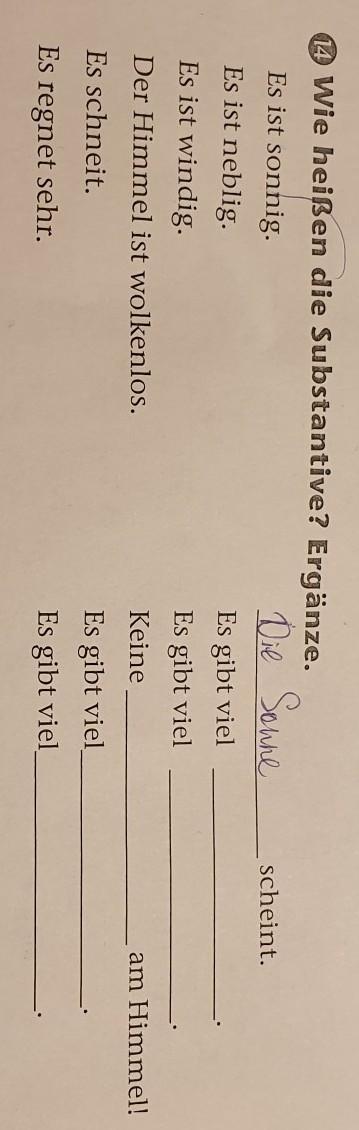 14 Wie heißen die Substantive? Ergänze.
Es ist sonnig. Die Sonne scheint.
Es ist neblig. Es gibt viel ___________.
Es ist windig. Es gibt viel ___________.
Der Himmel ist wolkenlos. Keine ___________ am Himmel!
Es schneit. Es gibt viel ___________.
Es regnet sehr. Es gibt viel ___________.